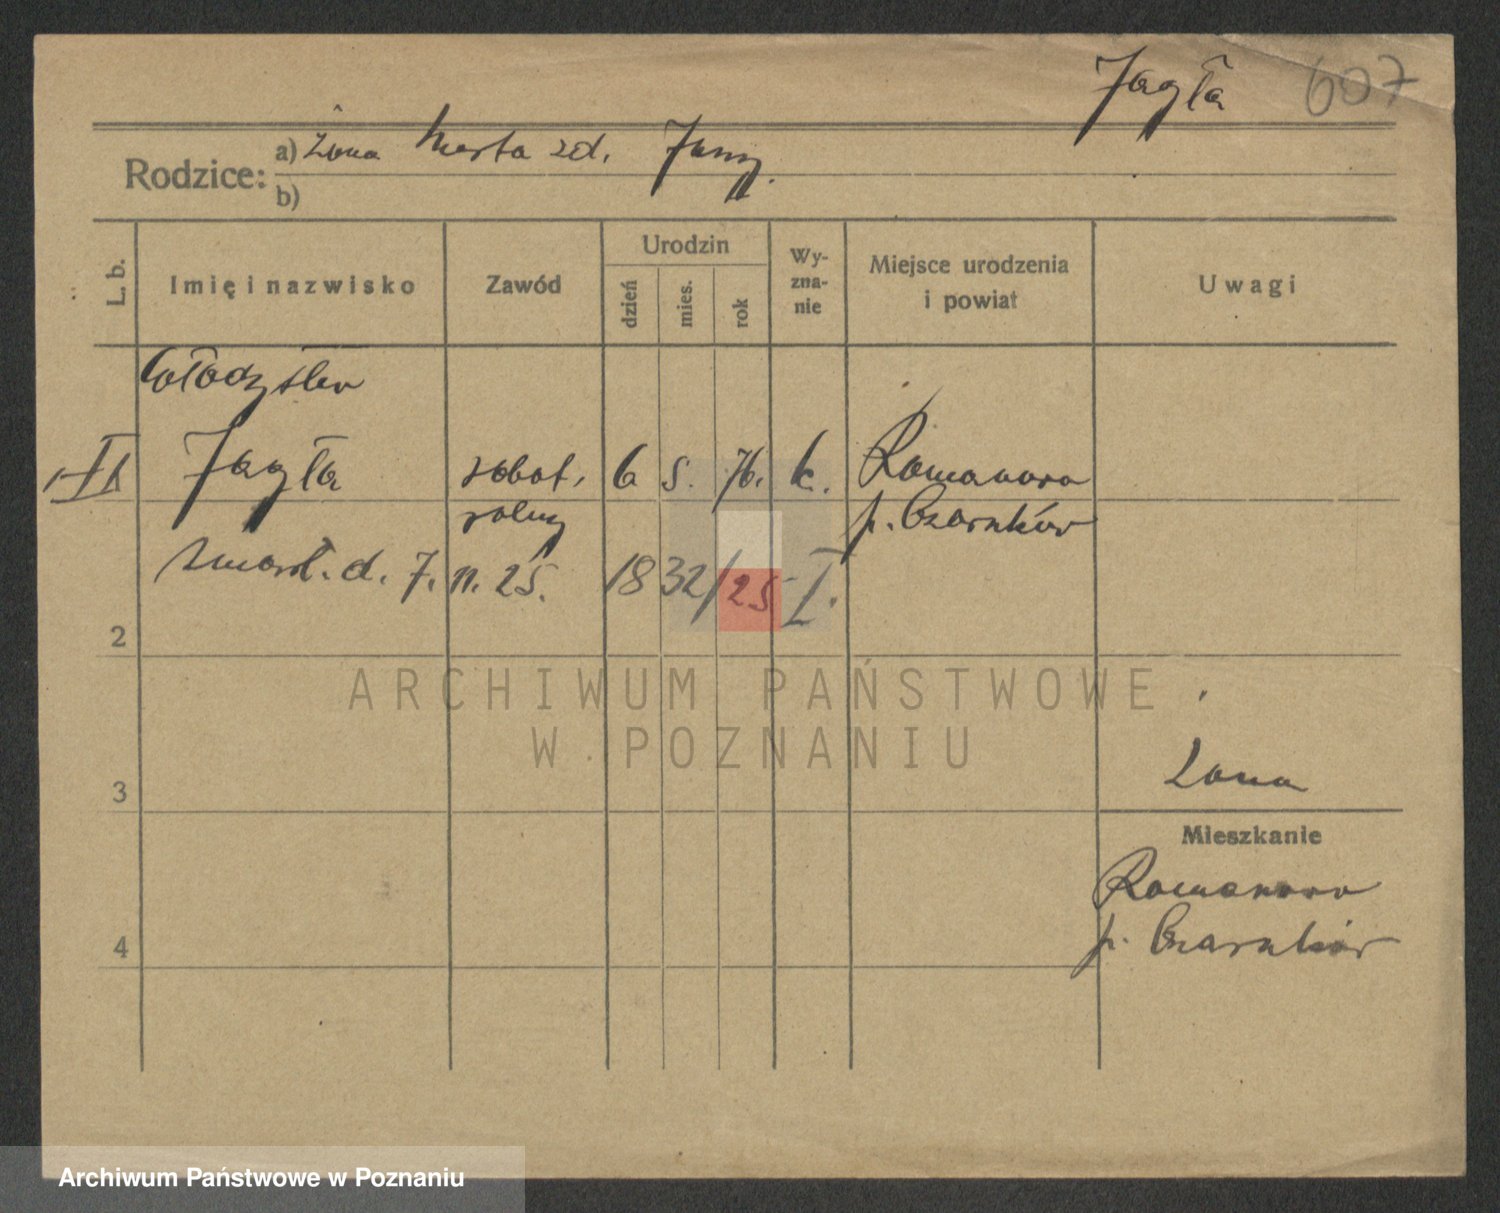 Jagła 607
Rodzice:
a) Żona Marta zd.
b)
L. b.
Imię i nazwisko
Zawód
Urodzin
dzień
mies.
rok
Wy-
zna-
nie
Miejsce urodzenia
i powiat
Uwagi
Władysław
Jagła robot. 6 5. 76. k. Romanowo
rolny p. Czarnków
zmarł. d. 7. 11. 25. 1832/25 I.
2
ARCHIWUM PAŃSTWOWE
W POZNANIU
3
Żona
Mieszkanie
Romanowo
4
p. Czarnków
Archiwum Państwowe w Poznaniu